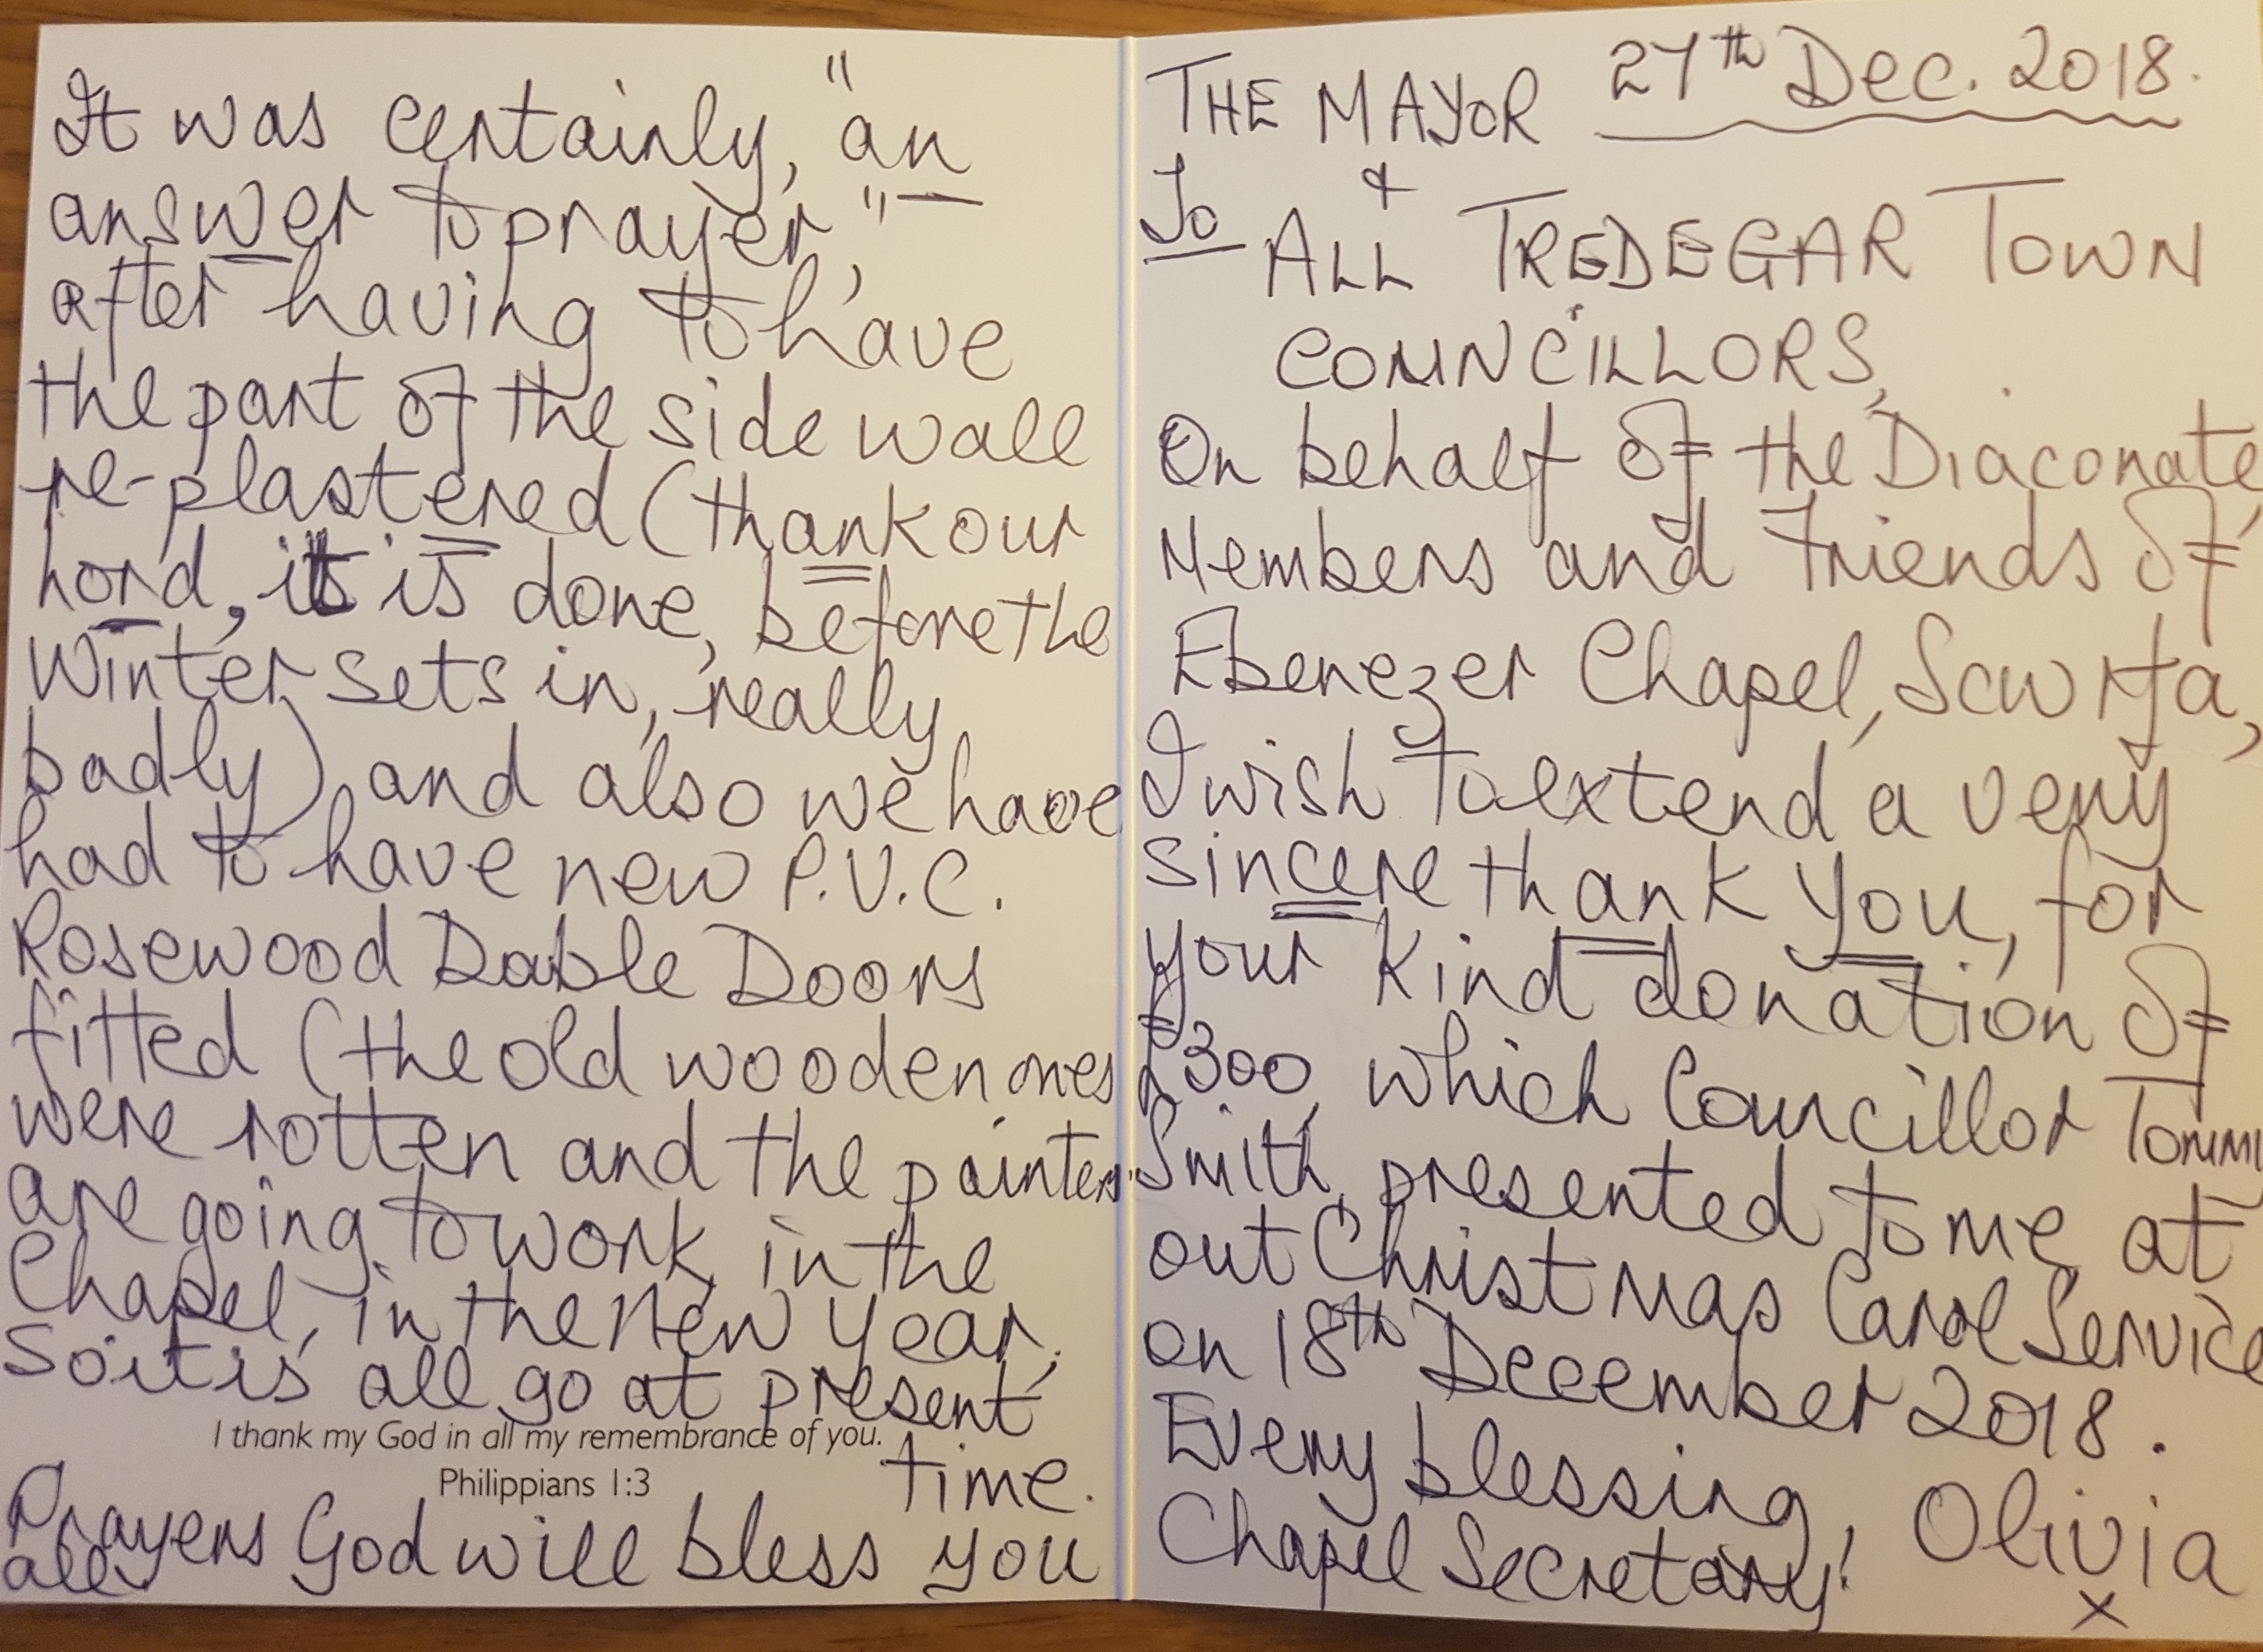 It was certainly, "an
answer to prayer,"
after having to have
the part of the side wall
re-plastered (thank our
Lord, it is done, before the
Winter sets in, really
badly) and also we have
had to have new P.V.C.
Rosewood Double Doors
fitted (the old wooden ones
were rotten and the painters
are going to work, in the
Chapel, in the New Year,
So it is all go at present
I thank my God in all my remembrance of you.
time.
Philippians 1:3
Prayers God will bless you
all.
27th Dec. 2018.
THE MAYOR
&
To ALL TREDEGAR TOWN
COUNCILLORS,
On behalf of the Diaconate,
Members and Friends of
Ebenezer Chapel, Scwrfa,
I wish to extend a very
sincere thank you, for
your kind donation of
£300, which Councillor Tommy
Smith, presented to me at
out Christmas Carol Service
on 18th December 2018.
Every blessing,
Chapel Secretary! Olivia
x